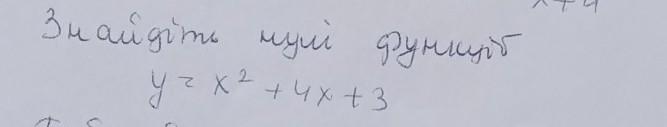 x+4
Знайдіть нулі функції
y = x² + 4x + 3